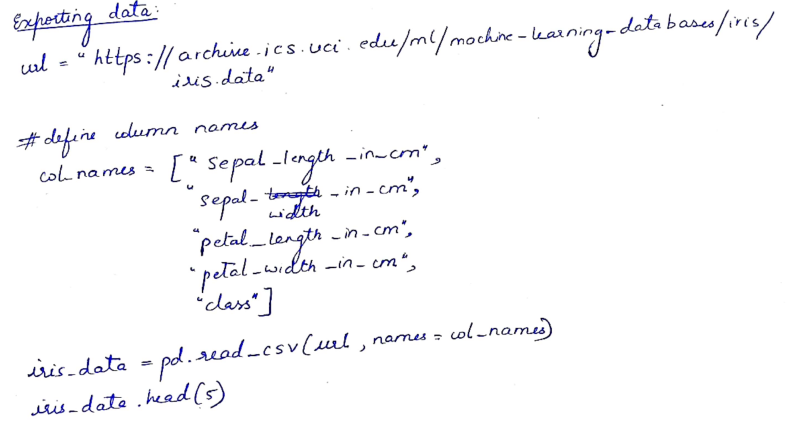 Exporting data:
url = "https://archive.ics.uci.edu/ml/machine-learning-databases/iris/
iris.data"
# define column names
col_names = ["sepal_length_in_cm",
"sepal_width_in_cm",
"petal_length_in_cm",
"petal_width_in_cm",
"class"]
iris_data = pd.read_csv(url, names = col_names)
iris_data.head(5)